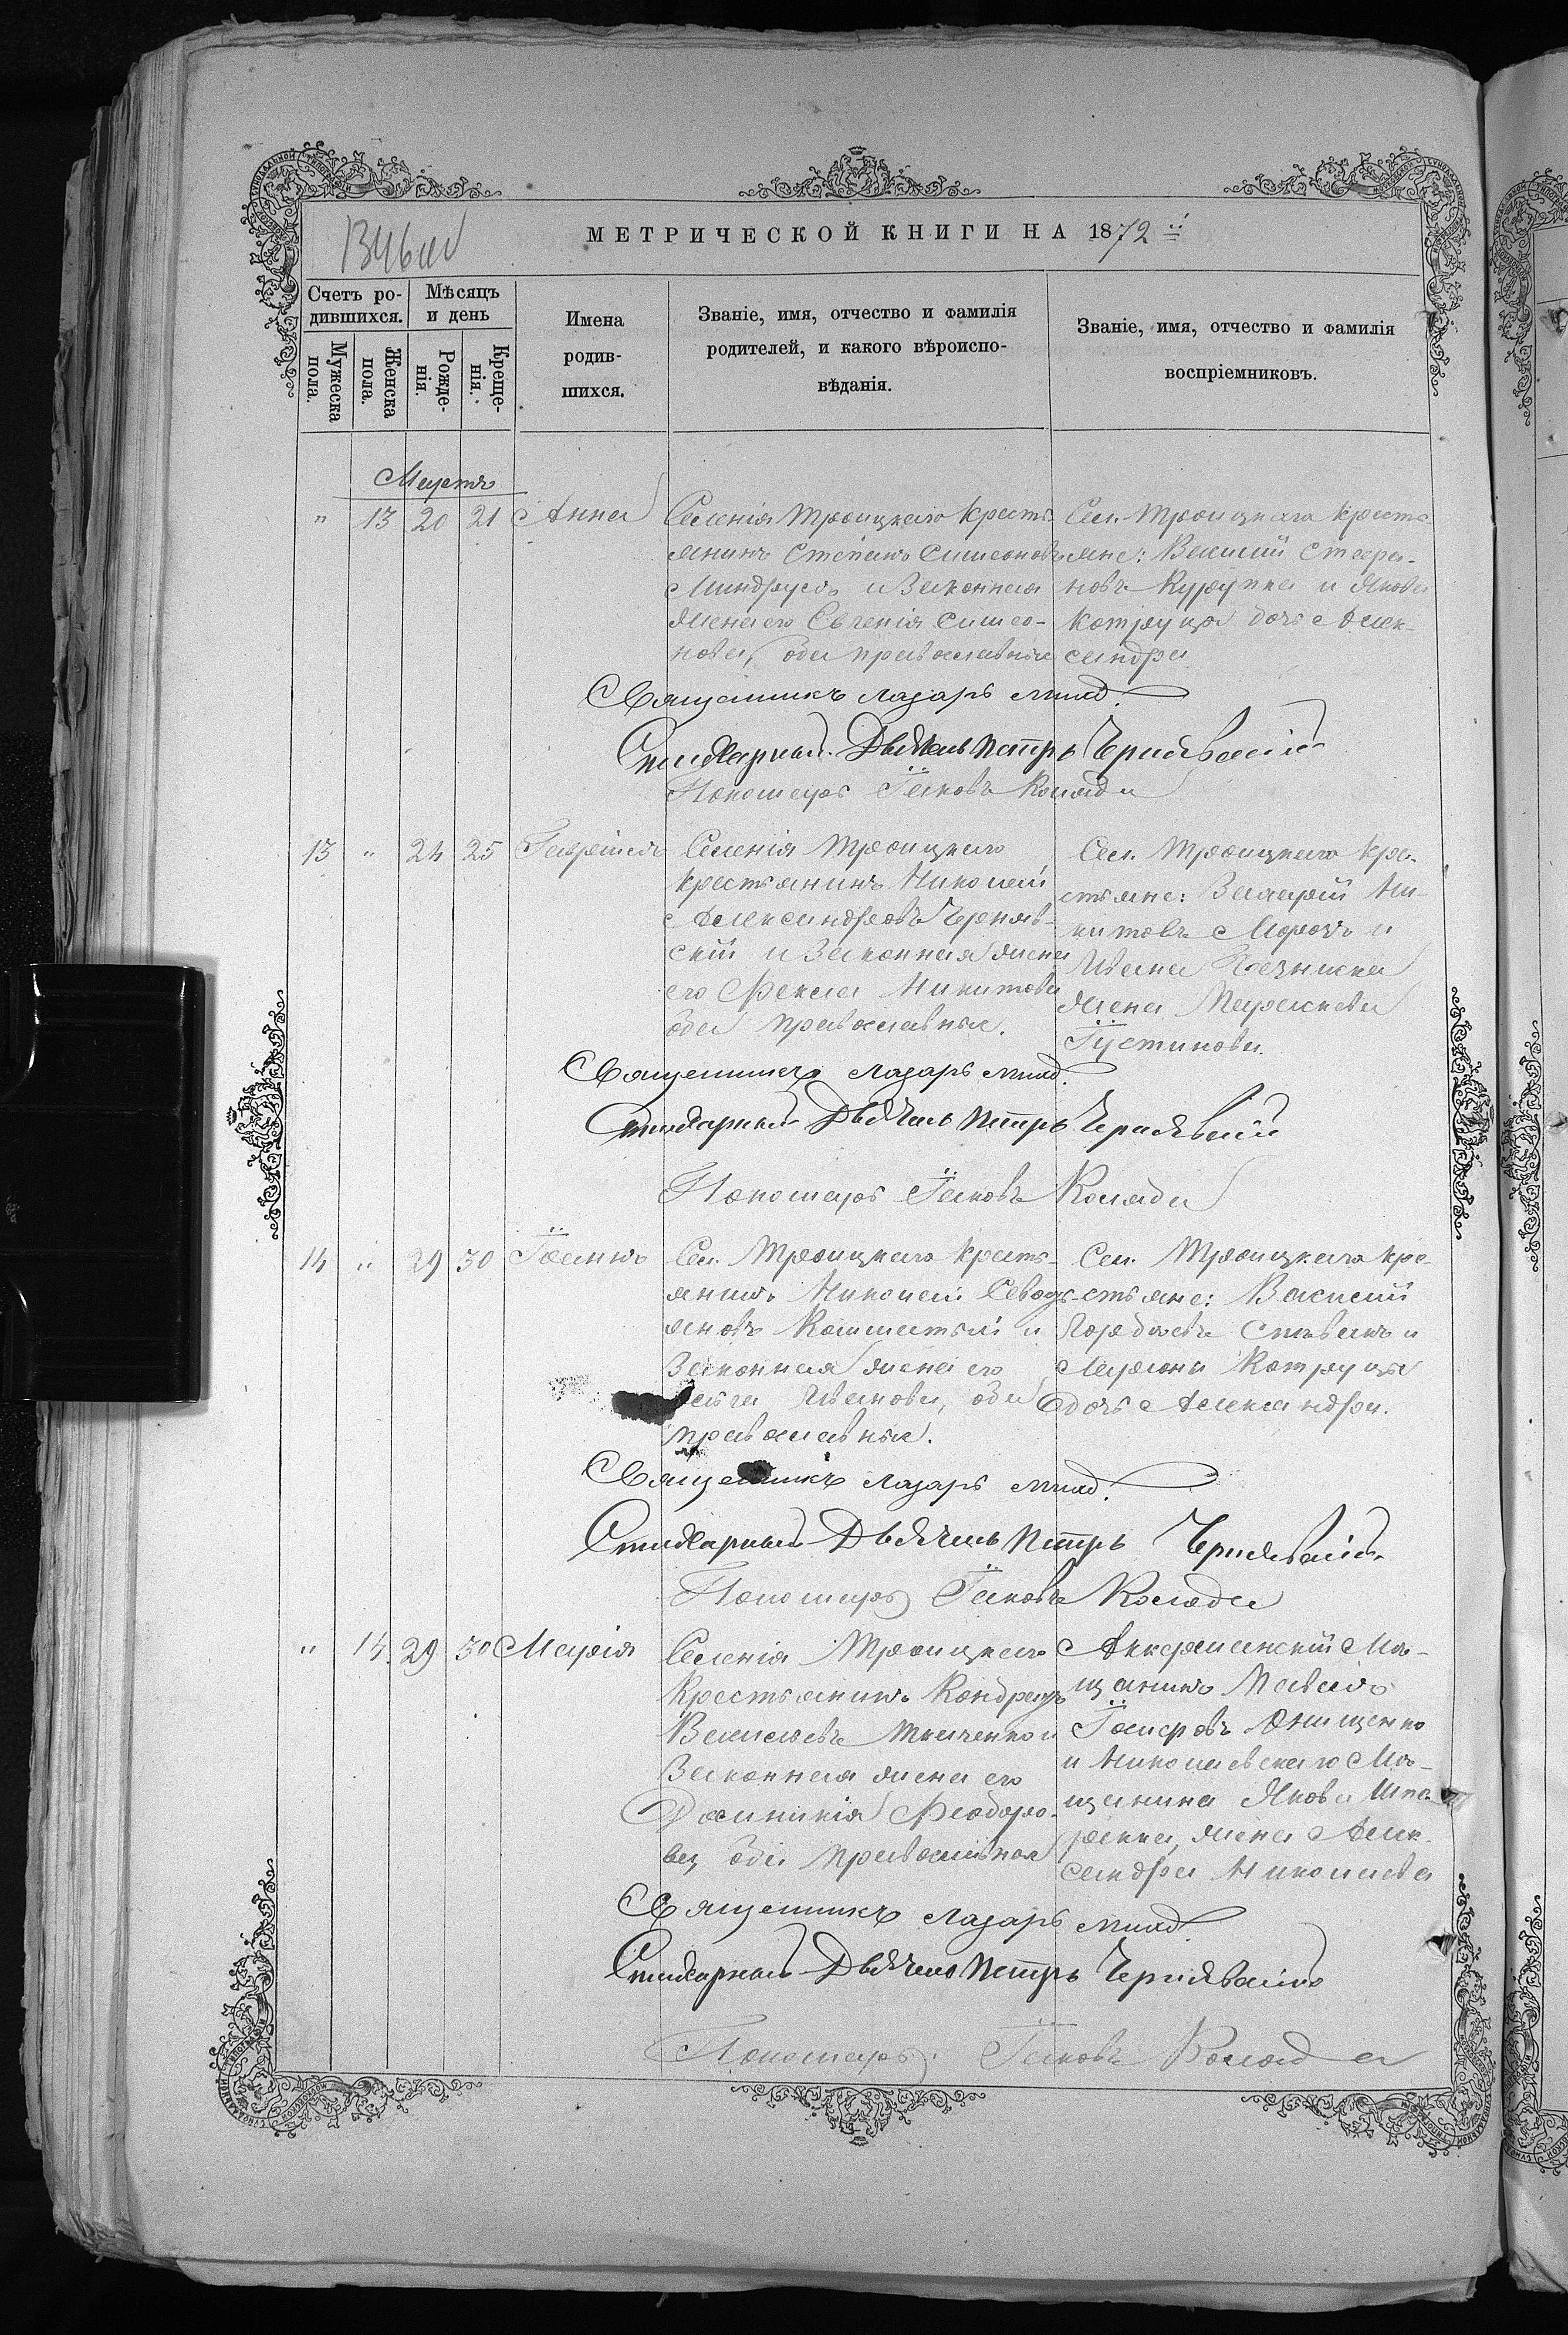 МЕТРИЧЕСКОЙ КНИГИ НА 1872
Счетъ ро-
дившихся.
Мѣсяцъ
и день
Мужеска
пола.
Женска
пола.
Рожде-
нія.
Креще-
нія.
Имена
родив-
шихся.
Званіе, имя, отчество и фамилія
родителей, и какого вѣроиспо-
вѣданія.
Званіе, имя, отчество и фамилія
воспріемниковъ.
Мартъ
" 13 20 21 Анна
Селенія Троицкаго кресть-
янинъ Стефанъ Симеоновъ
Миндрулъ и Законная
жена его Евгенія Симео-
нова, оба православные
Сел. Троицкаго кресть-
яне: Василий Стефа-
новъ Курупка и Якова
Котруца дочь Алек-
сандра
Священникъ Лазарь
Стихарный Дьячекъ Петръ Чернявскій
Пономарь Іаковъ Коляда
13 " 24 25 Гавріилъ
Селенія Троицкаго
крестьянинъ Николай
Александровъ Черняв-
скій и Законная жена
его Фекла Никитова
оба православные.
Сел. Троицкаго кре-
стьяне: Захарій Ни-
китовъ Морозъ и
Ивана
жена Параскева
Іустинова.
Священникъ Лазарь
Стихарный Дьячекъ Петръ Чернявскій
Пономарь Іаковъ Коляда
14 " 29 30 Іоаннъ
Сел. Троицкаго кресть-
янинъ Николай Севасть-
яновъ и
Законная жена его
Иванова, оба
православные.
Сел. Троицкаго кре-
стьяне: Василий
Гордѣевъ Сливанъ и
Лариона Котруцы
дочь Александра.
Священникъ Лазарь
Стихарный Дьячекъ Петръ Чернявскій
Пономарь Іаковъ Коляда
" 14 29 30 Марія
Селенія Троицкаго
Крестьянинъ Кондратъ
Васильевъ Ткаченко и
Законная жена его
Домникія Феодоро-
ва, оба православные
Аккерманскій Мѣ-
щанинъ Павелъ
Онищенко
и Николаевскаго Мѣ-
щанина Якова
жена Алек-
сандра Николаева
Священникъ Лазарь
Стихарный Дьячекъ Петръ Чернявскій
Пономарь Іаковъ Коляда